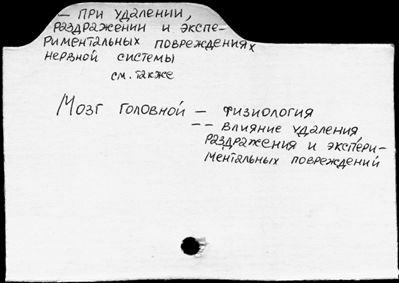 — ПРИ УДАЛЕНИИ,
РАЗДРАЖЕНИИ И ЭКСПЕ-
РИМЕНТАЛЬНЫХ ПОВРЕЖДЕНИЯХ
НЕРВНОЙ СИСТЕМЫ
см. также
МОЗГ ГОЛОВНОЙ — ФИЗИОЛОГИЯ
— — ВЛИЯНИЕ УДАЛЕНИЯ
РАЗДРАЖЕНИЯ И ЭКСПЕРИ-
МЕНТАЛЬНЫХ ПОВРЕЖДЕНИЙ